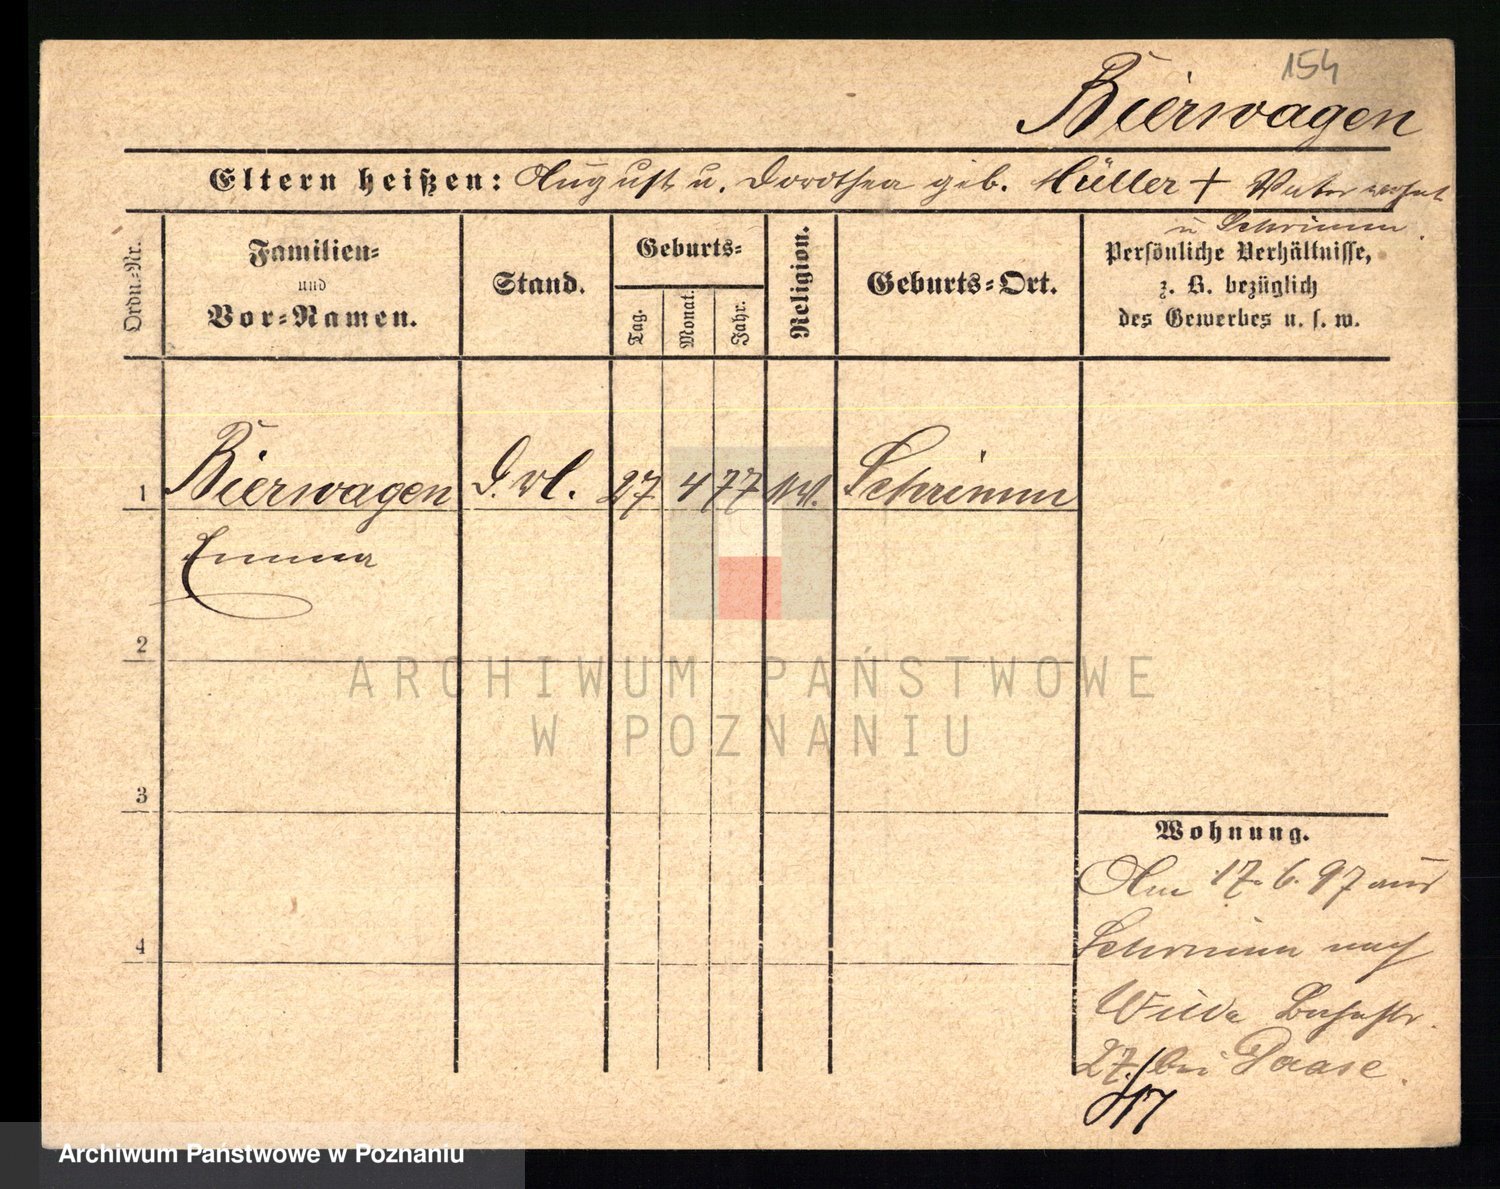 154
Bierwagen
Eltern heißen: August u. Dorothea geb. Müller + Vater wohnt
Schrimm.
Ordn.-Nr.
Familien-
und
Vor-Namen.
Stand.
Geburts-
Tag.
Monat.
Jahr.
Religion.
Geburts-Ort.
Persönliche Verhältnisse,
z. B. bezüglich
des Gewerbes u. s. w.
1 Bierwagen 27 4 77 Schrimm
Emma
2
3
4
Wohnung.
Am 17. 6. 97 aus
Schrimm nach
Wilda Bahnstr.
27. bei Paase.
ARCHIWUM PAŃSTWOWE
W POZNANIU
Archiwum Państwowe w Poznaniu